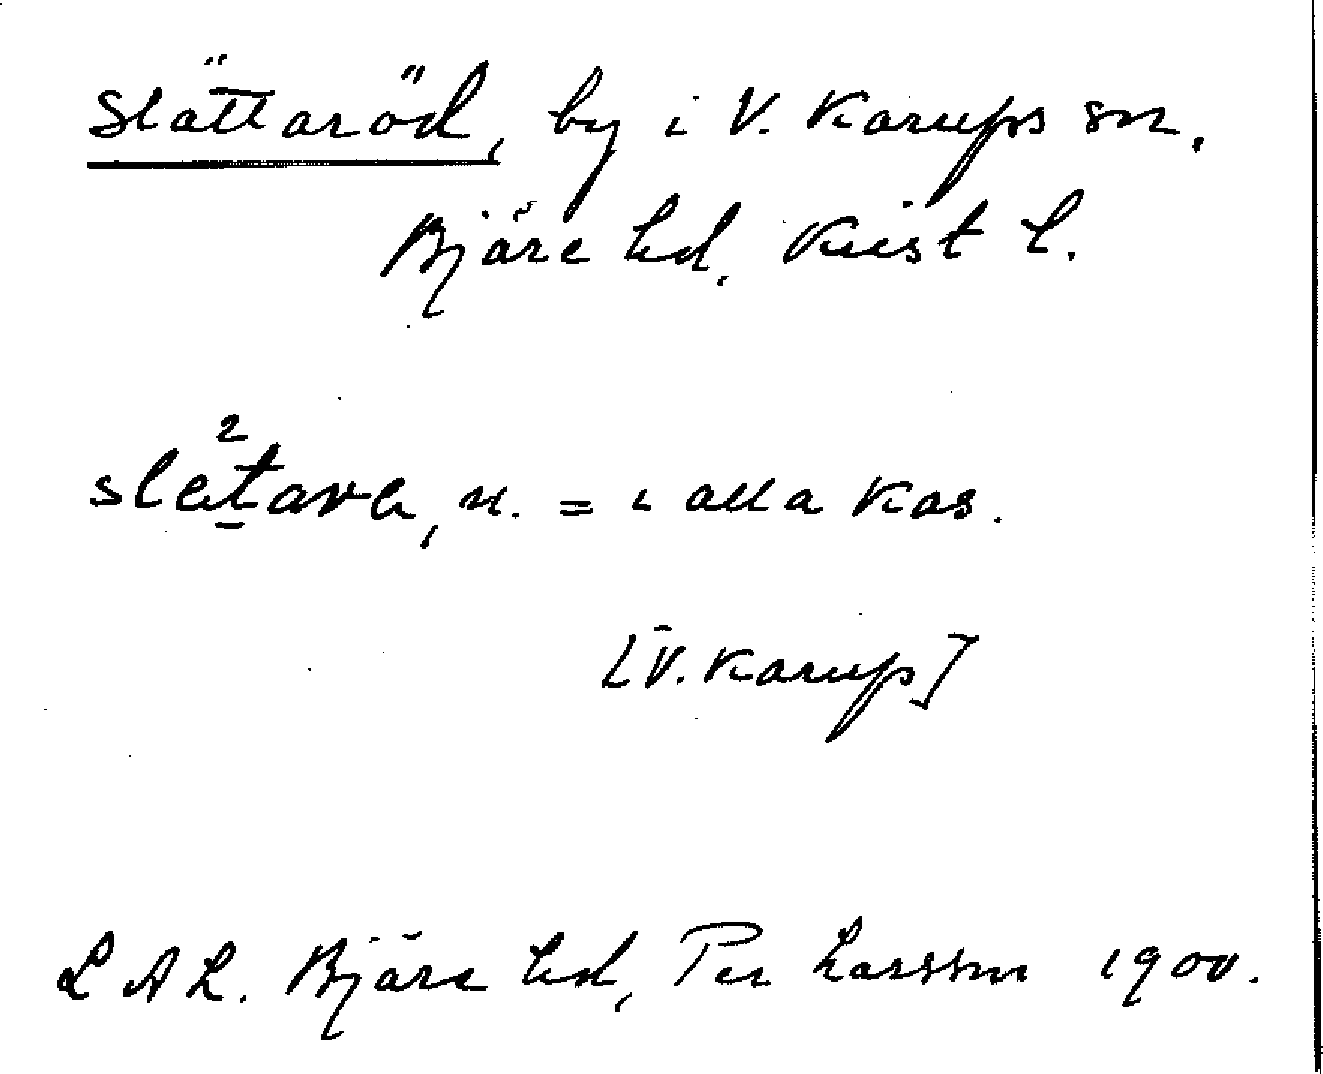 Slättaröd, by i V. Karups sn.
Bjäre hd. Krist l.
n. = i alla kas.
[V. Karup]
L A L. Bjäre hd, Per Larsson 1900.